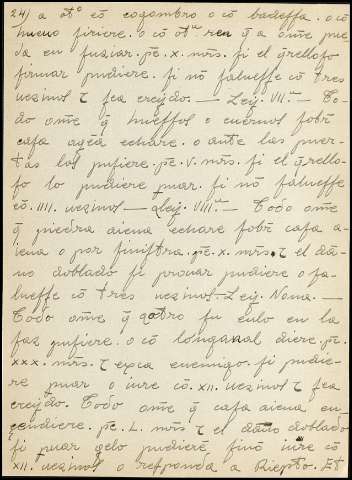 24) a ot.º cõ cogombro o cõ badeffa. o cõ
hueuo firiere. o cõ otª rea q̃ a ome pue
da en fuziar. pe. x. mrs. fi el q̃rellofo
firmar pudiere. fi nõ falueffe cõ tres
uezinos τ fea creydo. — Ley. VIIª. — To-
do ome q̃ hueffos o cuernos fobr̃
cafa agẽa echare. o ante las puer-
tas las pufiere. pe. v. mrs. fi el q̃rello-
fo lo pudiere puar. fi nõ falueffe
cõ. IIII. uezinos — Ley. VIIIª. — Todo ome
q̃ piedra aiena echare fobr̃ cafa a-
iena o por finiftra. pe. x. mrs. τ el dã-
no doblado fi prouar pudiere o fa-
lueffe cõ tres uezinos. Ley. Nona. —
Todo ome q̃ a otro fu culo en la
faz pufiere. o cõ longaal diere. pe.
xxx. mrs. τ exca enemigo. fi pudie-
re puar o iure cõ. XII. uezinos τ fea
creydo. Todo ome q̃ cafa aiena en-
cendiere. pe. L. mrs τ el daño doblado
fi puar gelo pudierẽ. finõ iure cõ
XII. uezinos o refponda a Riepto. Et